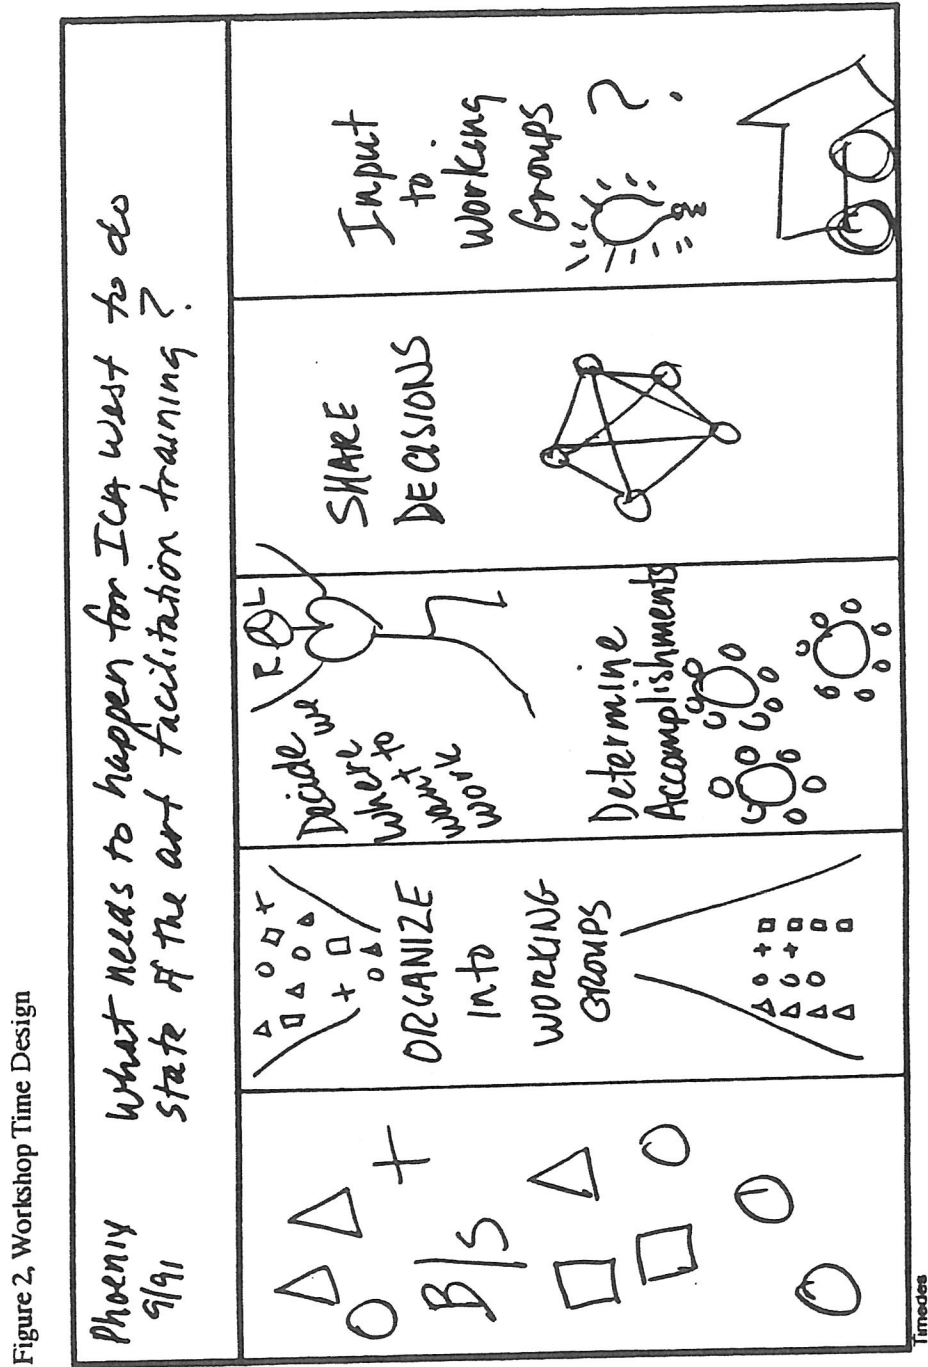 Figure 2, Workshop Time Design
Phoenix
9/91
What needs to happen for ICA West to do
state of the art facilitation training?
B/S
ORGANIZE
Into
WORKING
GROUPS
Decide
Where we
want to
work
R L
Determine
Accomplishments
SHARE
DECISIONS
Input
to
Working
Groups
?
Timedes